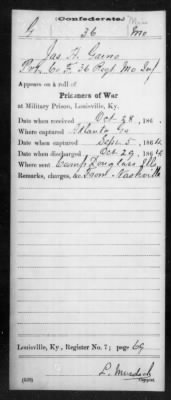 (Confederate.)
G 36 Mo
Jas. H. Gaino
Pvt, Co. F, 36 Regt Mo Inf
Appears on a roll of
Prisoners of War
at Military Prison, Louisville, Ky.
Date when received Oct 28, 186 .
Where captured Atlanta Ga
Date when captured Sept. 5, 1864
Date when discharged Oct 29, 1864
Where sent Camp Douglass Ills
Remarks, charges, &c. From Nashville
Louisville, Ky., Register No. 7; page 69
L. Murdoch
Copyist.